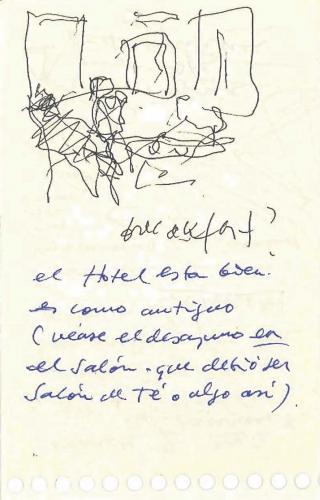 breakfast?
el Hotel esta bien.
es como antiguo
(véase el desayuno en
el salón. que debió ser
salón de Té o algo así).